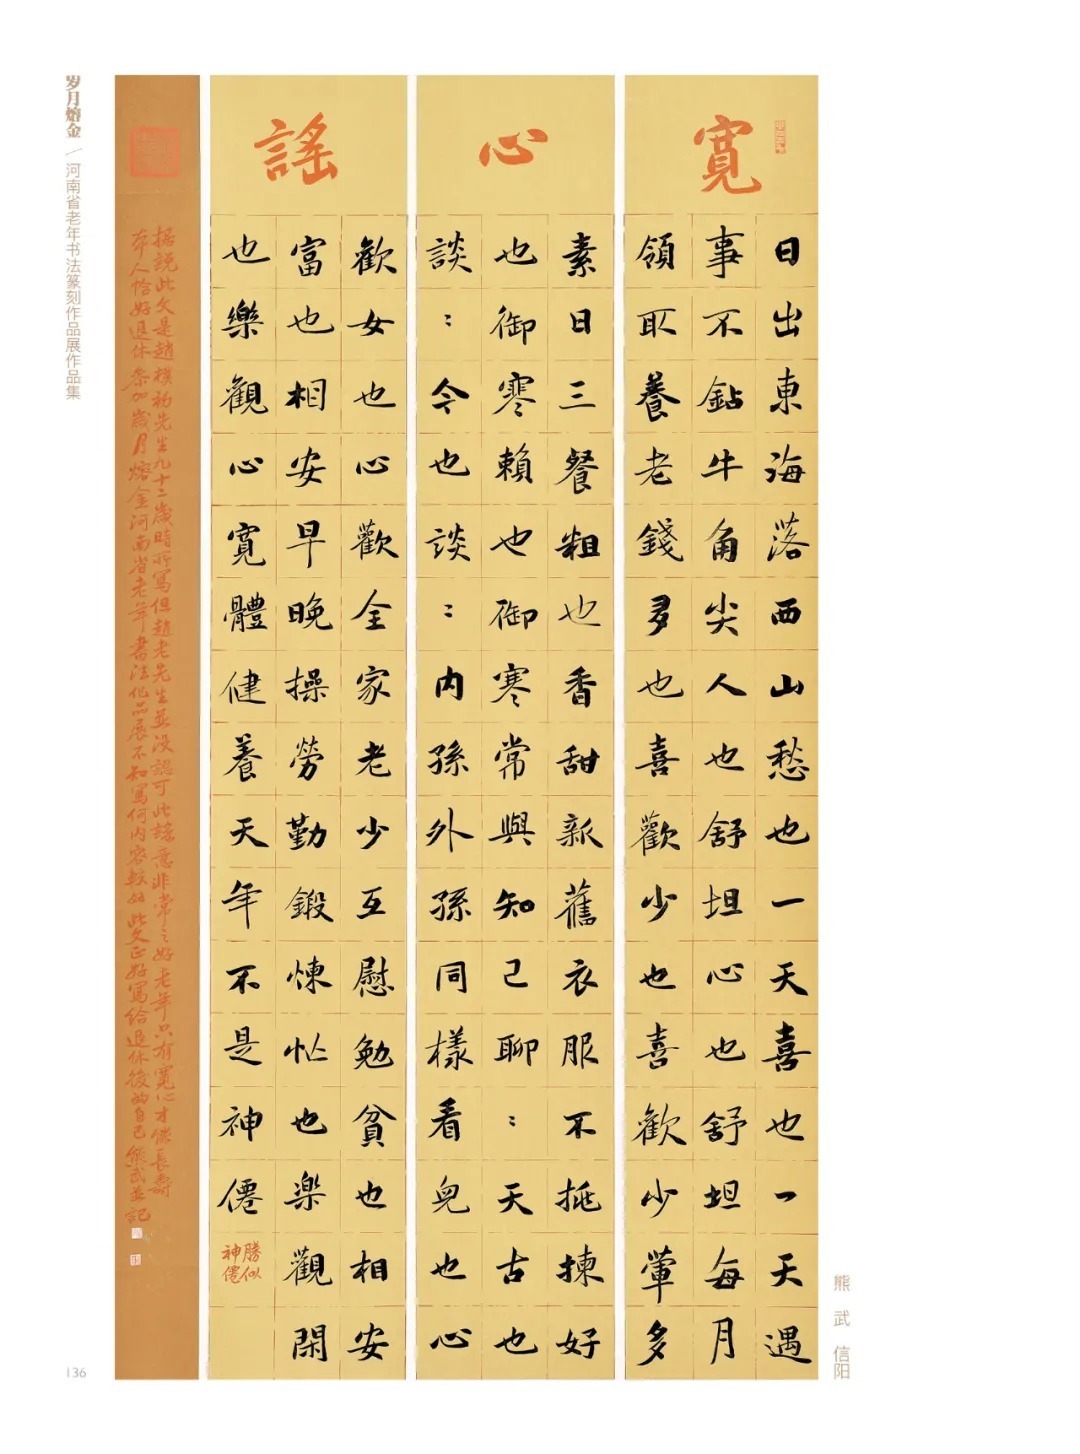 岁月熔金 / 河南省老年书法篆刻作品展作品集
寬
心
謠
日出東海落西山愁也一天喜也一天遇
事不鉆牛角尖人也舒坦心也舒坦每月
領取養老錢多也喜歡少也喜歡少葷多
素日三餐粗也香甜新舊衣服不挑揀好
也御寒賴也御寒常與知己聊：天古也
談：今也談：内孫外孫同樣看兒也心
歡女也心歡全家老少互慰勉貧也相安
富也相安早晚操勞勤鍛煉忙也樂觀閑
也樂觀心寬體健養天年不是神僊
勝似
神僊
据説此文是趙樸初先生九十二歲時所寫但趙老先生並没認可此謠意非常之好老年只有寬心才能長壽
本人恰好退休參加歲月熔金河南省老年書法作品展不知寫何内容較好此文正好寫給退休後的自己熊武並記
熊武 信阳
136